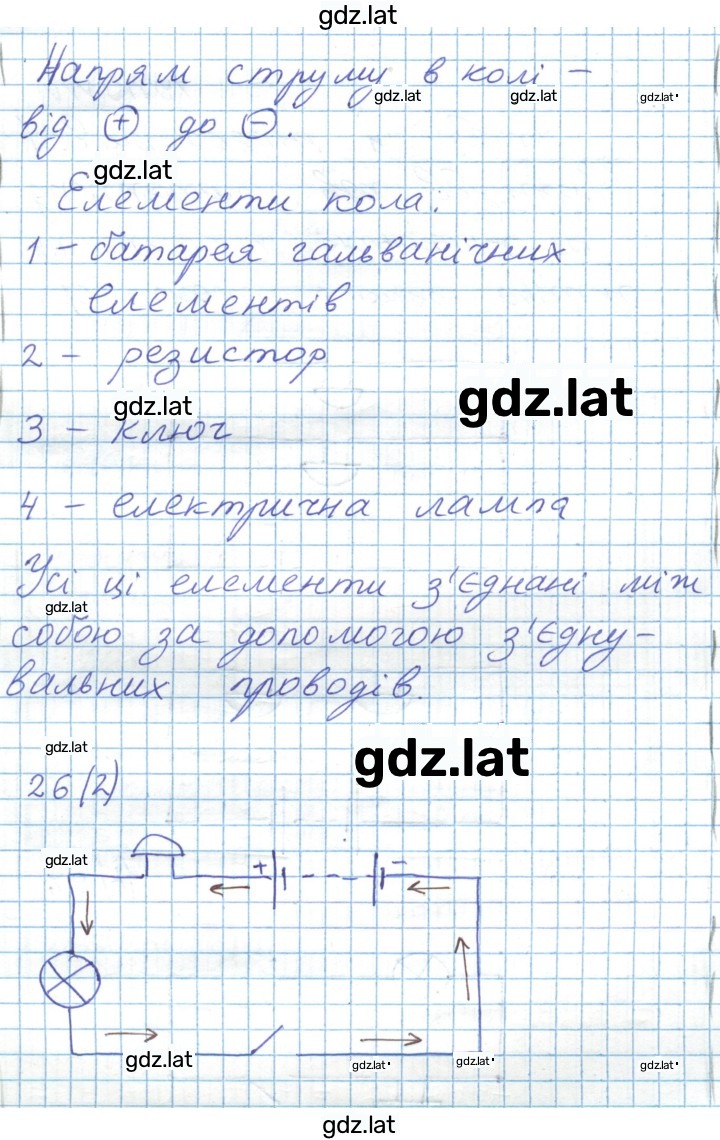 gdz.lat
Напрям струму в колі –
gdz.lat gdz.lat gdz.lat
від + до –.
gdz.lat
Елементи кола:
1 – батарея гальванічних
елементів
2 – резистор
gdz.lat
gdz.lat
3 – ключ
4 – електрична лампа
Усі ці елементи з'єднані між
gdz.lat
собою за допомогою з'єдну-
вальних проводів.
gdz.lat
gdz.lat
26 (2)
gdz.lat
+ –
gdz.lat
gdz.lat gdz.lat gdz.lat
gdz.lat